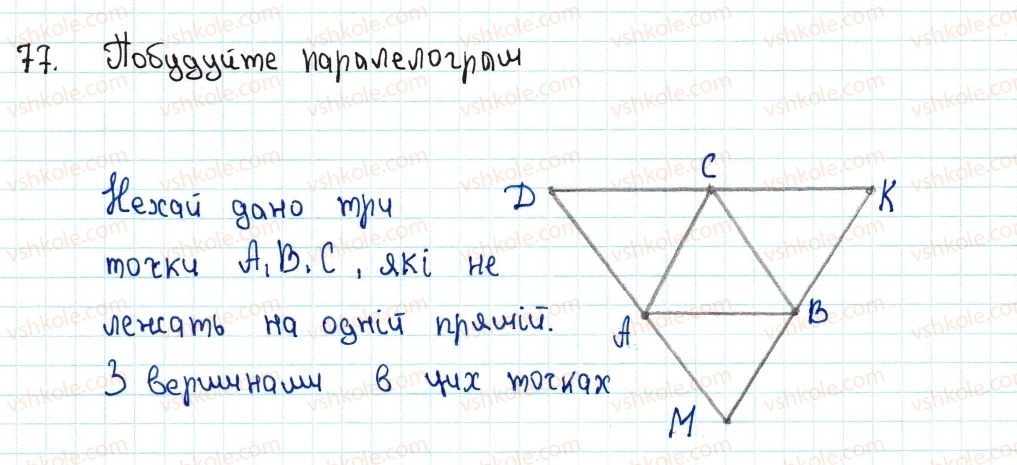 77. Побудуйте паралелограм
Нехай дано три
точки A, B, C, які не
лежать на одній прямій.
З вершинами в цих точках
D C K
A B
M